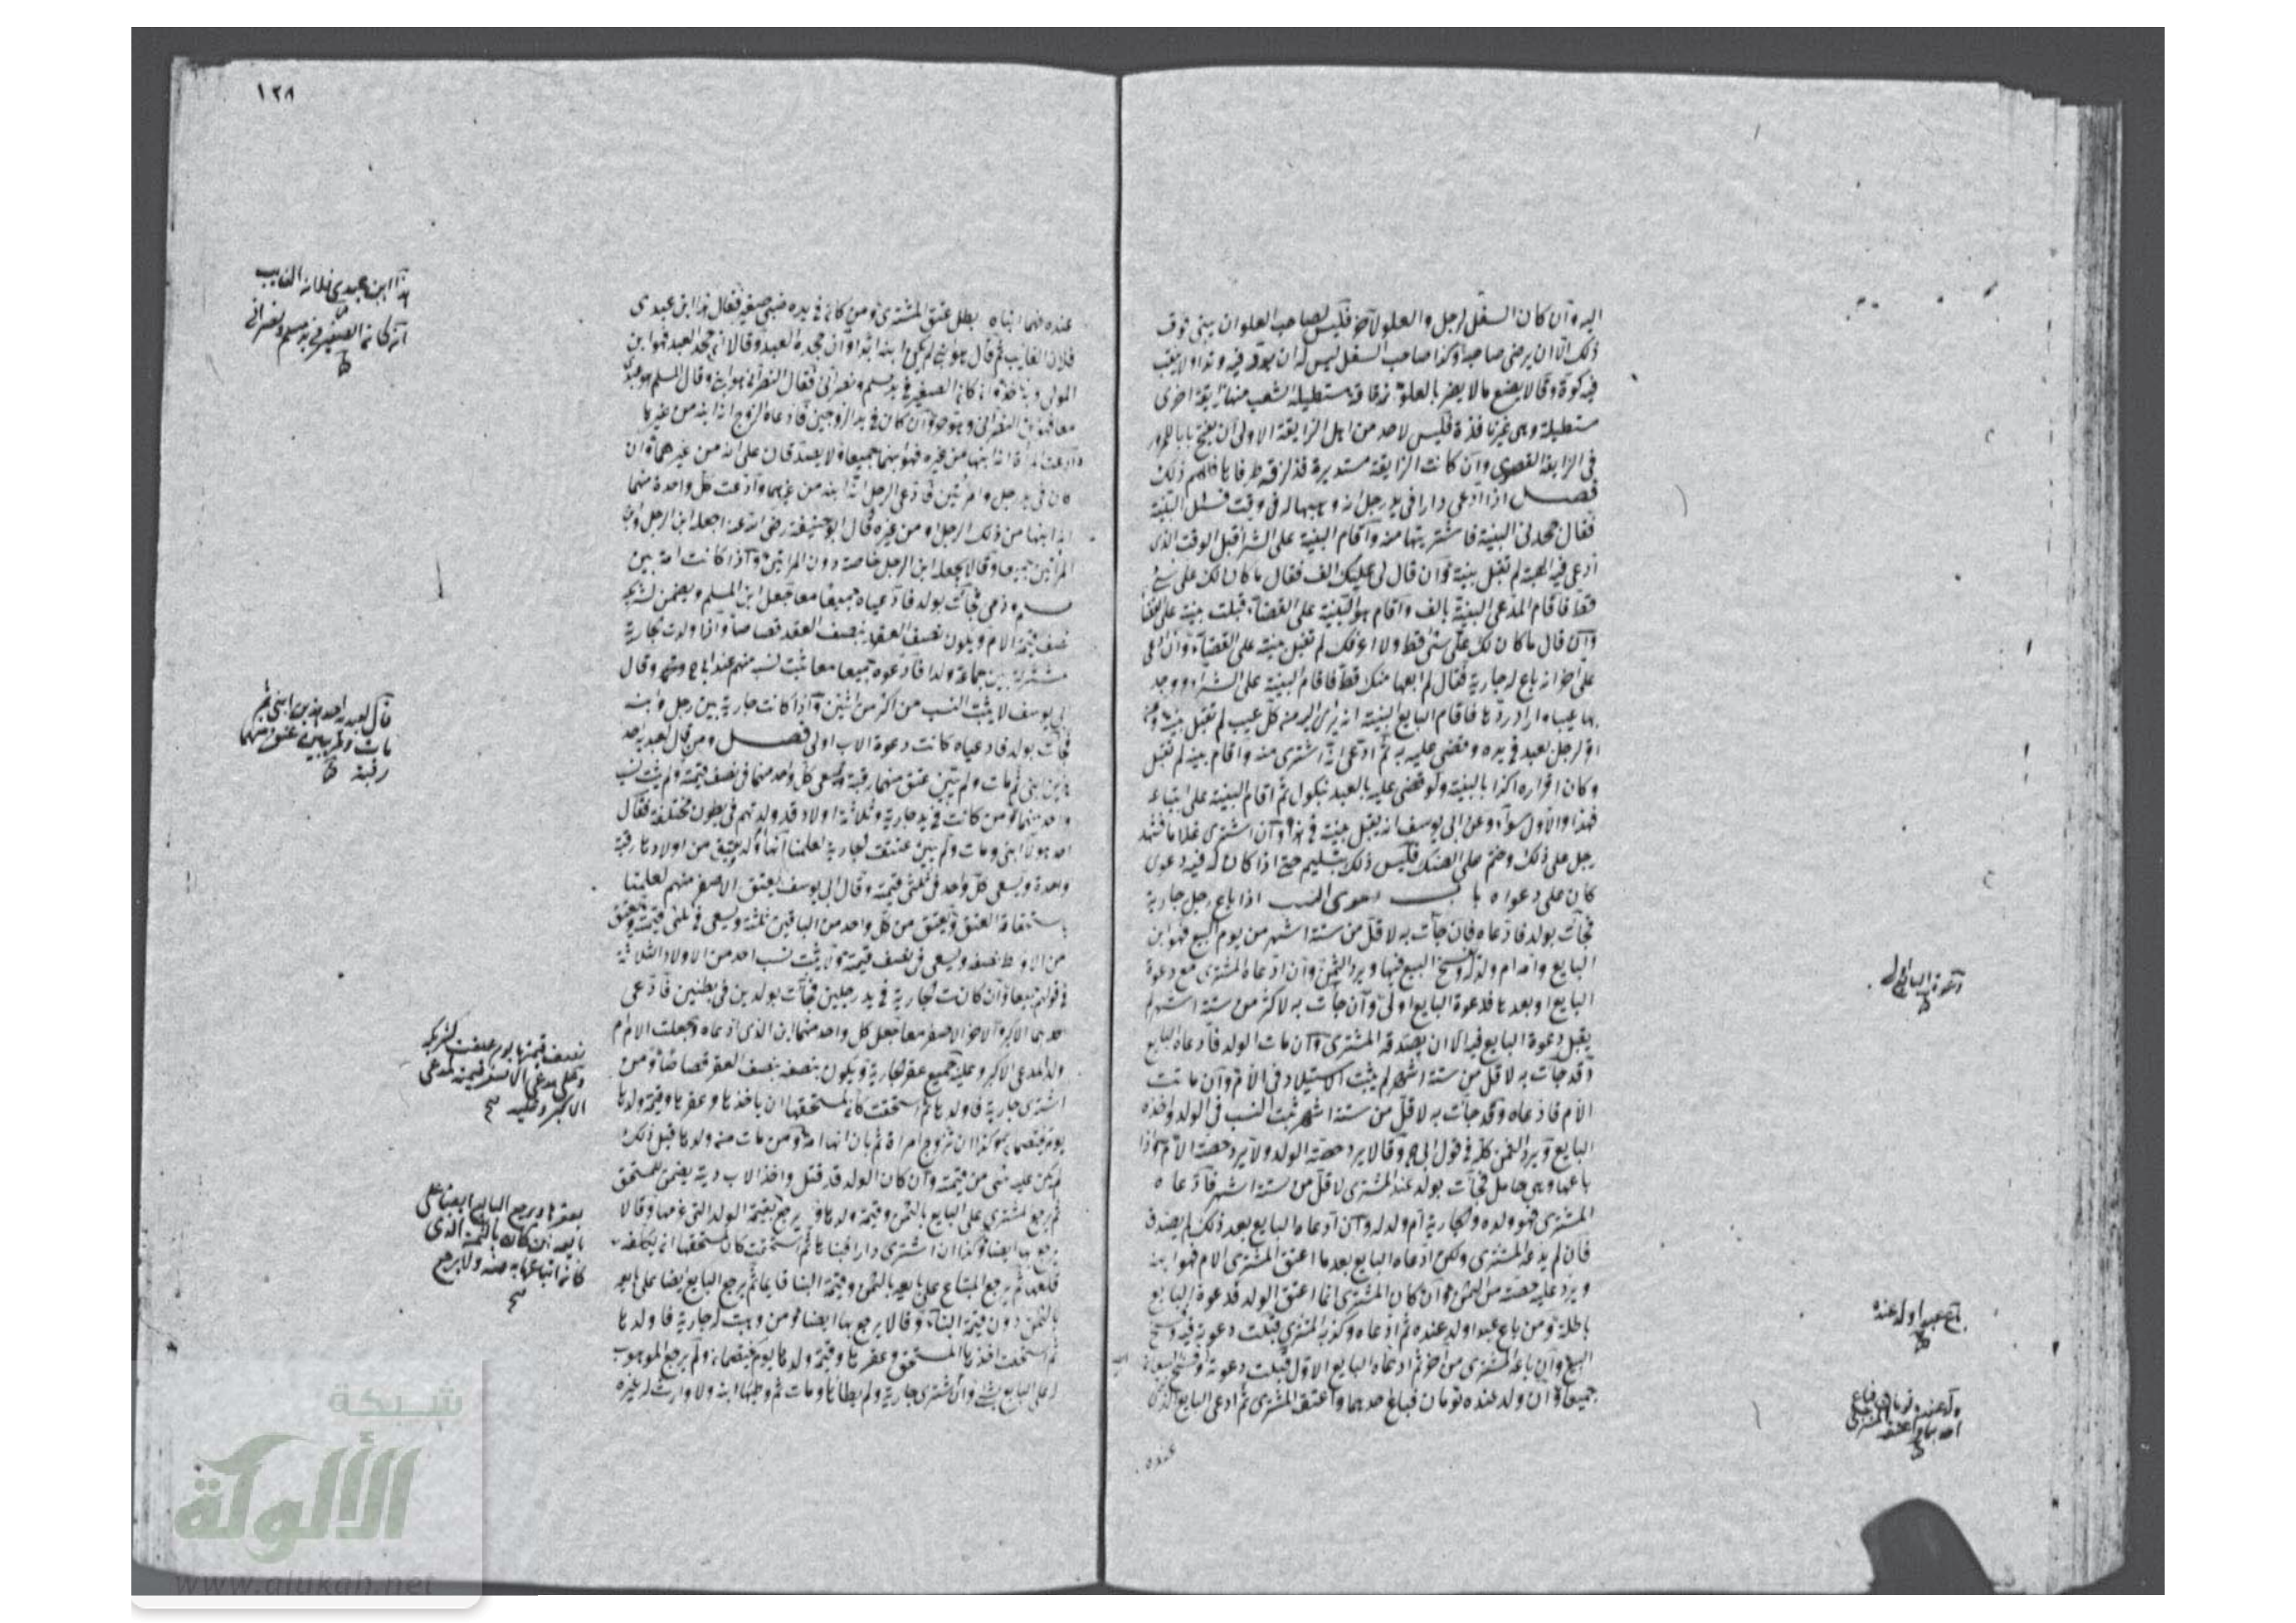 اليه وان كان السفل لرجل والعلو لآخر فليس لصاحب العلو ان يبنى فوق
ذلك الا ان يرضى صاحبه وكذا صاحب السفل ليس له ان يوتد فيه وتدا ولا ينقب
فيه كوة وقالا يصنع ما لا يضر بالعلو زقاقة مستطيلة تشعب منها زايغة اخرى
مستطيلة وهى غير نافذة فليس لاحد من اهل الزايغة الاولى ان يفتح بابا للمرور
فى الزايغة القصوى وان كانت الزايغة مستديرة قد لزق طرفاها فلهم ذلك
فصل اذا ادعى دارا فى يد رجل انه وهبها له فى وقت فسئل البينة
فقال جحدنى البينة فاشتريتها منه واقام البينة على الشرا قبل الوقت الذى
ادعى فيه الهبة لم تقبل بينته وان قال لى عليك الف فقال ما كان لك على شئ
قط فاقام المدعى البينة بالف واقام هو البينة على القضاء قبلت بينته على القضا
وان قال ما كان لك على شئ قط ولا اعرفك لم تقبل بينته على القضاء وان ادعى
على آخر انه باع له جارية فقال لم ابعها منك قط فاقام البينة على الشراء ووجد
بها عيبا واراد ردها فاقام البايع البينة انه برئ اليه من كل عيب لم تقبل بينته
اقر لرجل بعبد فى يده وقضى عليه به ثم ادعى انه اشترى منه واقام بينة لم تقبل
وكان اقراره اكذابا لبينته ولو قضى عليه بالعبد بنكول ثم اقام البينة على ابتياعه
فهذا والاول سواء وعن ابى يوسف انه يقبل بينته فى هذا وان اشترى غلاما فشهد
رجل على ذلك وختم على الصك فليس ذلك بتسليم حتى اذا كان له فيه دعوى
كان على دعواه باب دعوى النسب اذا باع رجل جارية
فجآت بولد فادعاه فان جآت به لاقل من ستة اشهر من يوم البيع فهو ابن
البايع وامه ام ولد له ويفسخ البيع فيها ويرد الثمن وان ادعاه المشترى مع دعوة
البايع او بعدها فدعوة البايع اولى وان جآت به لاكثر من ستة اشهر لم
يقبل دعوة البايع فيه الا ان يصدقه المشترى وان مات الولد فادعاه البايع
وقد جآت به لاقل من ستة اشهر لم يثبت الاستيلاد فى الام وان ماتت
الام فادعاه وقد جآت به لاقل من ستة اشهر ثبت النسب فى الولد واخذه
البايع ويرد الثمن كله فى قول ابى ح وقالا يرد حصة الولد ولا يرد حصة الام واذا
باعها وهى حامل فجآت بولد عند المشترى لاقل من ستة اشهر فادعاه
المشترى فهو ولده والجارية ام ولد له وان ادعاه البايع بعد ذلك لم يصدق
فان لم يدعه المشترى ولكن ادعاه البايع بعد ما اعتق المشترى الام فهو ابنه
ويرد عليه حصته من الثمن وان كان المشترى انما اعتق الولد فدعوة البايع
باطلة ومن باع عبدا ولد عنده ثم ادعاه وكذبه المشترى قبلت دعوته فيه وفسخ
البيع وان باعه المشترى من آخر ثم ادعاه البايع الاول قبلت دعوته وفسخ البيعان
جميعا وان ولد عنده تومان فباع احدهما واعتقه المشترى ثم ادعى البايع الذى
عنده
دعوة البايع
باع عبدا ولد عنده
ولد عنده توما فباع
احدهما واعتقه المشترى
١٢٨
عنده فهما ابناه بطل عتق المشترى ومن كان فى يده صبى صغير فقال هذا ابن عبدى
فلان الغايب ثم قال هو ابنى لم يكن ابنه ابدا وان جحد العبد وقالا اذا جحد العبد فهو ابن
المولى واذا كان الصغير فى يد مسلم ونصرانى فقال النصرانى هو ابنى وقال المسلم هو عبدى
معا فهو ابن النصرانى وهو حر وان كان فى يد الزوجين فادعاه الزوج انه ابنه من غيرها
وادعت المراة انه ابنها من غيره فهو ابنهما جميعا ولا يصدقان على انه من غيرهما وان
كان فى يد رجل وامرأتين فادعى الرجل انه ابنه من غيرهما وادعت كل واحدة منهما
انه ابنها من ذلك الرجل او من غيره قال ابو حنيفة رضى الله عنه اجعله ابن الرجل وابن
المراتين جميعا وقالا يجعله ابن الرجل خاصة دون المراتين واذا كانت امة بين
مسلم وذمى فجآت بولد فادعياه جميعا معا جعل ابن المسلم ويضمن لشريكه
نصف قيمة الام ويكون نصف العقر بنصف العقر قصاصا واذا ولدت جارية
مشتركة بين جماعة ولدا فادعوه جميعا معا يثبت نسبه منهم عند ابى ح وقال
ابى يوسف لا يثبت النسب من اكثر من اثنين واذا كانت جارية بين رجل وابنه
فجآت بولد فادعياه كانت دعوة الاب اولى فصل ومن قال لعبديه احد
هذين ابنى ثم مات ولم يبين عتق منهما رقبة ويسعى كل واحد منهما فى نصف قيمته ولم يثبت نسب
واحد منهما ومن كانت فى يده جارية وثلاثة اولاد قد ولدتهم فى بطون مختلفة فقال
احد هولاء ابنى ومات ولم يبين عتقت الجارية لعلمنا انها ام ولد ويعتق من اولادها رقبة
واحدة ويسعى كل واحد فى ثلثى قيمته وقال ابى يوسف يعتق الاصغر منهم لعلمنا
باستحقاقه العتق ويعتق من كل واحد من الباقين ثلثه ويسعى فى ثلثى قيمته
من الاوسط نصفه ويسعى فى نصف قيمته ولا يثبت نسب احد من الاولاد الثلاثة
فى قولهم جميعا وان كانت الجارية فى يد رجلين فجآت بولدين فى بطنين فادعى
احدهما الاكبر والاخر الاصغر معا جعل كل واحد منهما ابن الذى ادعاه وجعلت الام ام
ولد لمدعى الاكبر وعليه جميع عقر الجارية ويكون بنصفه نصف العقر قصاصا ومن
اشترى جارية فاولدها ثم استحقت كان لمستحقها ان ياخذها وعقرها وقيمة ولدها
يوم يختصمان وكذا ان تزوج امراة ثم بان انها امة ومن مات منه ولدها قبل ذلك
لم يكن عليه شئ من قيمته وان كان الولد قد قتل واخذ الاب ديته يضمن للمستحق
ثم يرجع المشترى على البايع بالثمن وقيمة ولدها ولا يرجع بقيمة الولد التى غرمها وقالا
يرجع بها ايضا وكذا ان اشترى دارا فبناها ثم استحقت كان لمستحقها ان يكلفه
قلعها ثم يرجع المبتاع على بايعه بالثمن وقيمة البنا قايما ثم يرجع البايع ايضا على بايعه
بالثمن دون قيمة البناء وقالا يرجع بها ايضا ومن وهبت له جارية فاولدها
ثم استحقت اخذها المستحق وعقرها وقيمة ولدها يوم يختصمان ولم يرجع الموهوب
له على البايع بشئ وان اشترى جارية ولم يطأها ومات ثم وطئها ابنه ولا وارث له غيره
هذا ابن عبدى فلان الغايب
اذا كان الصغير فى يد مسلم ونصرانى
قال لعبديه احد هذين ابنى ثم
مات ولم يبين عتق منهما
رقبة
نصف قيمتها يوم علقت لشريكه
وعلى مدعى الاصغر قيمته لمدعى
الاكبر وعليه صح
بعقرها ويرجع البايع ايضا على
بايعه ان كان بالثمن الذى
كان ابتاعها به منه ولا يرجع
صح
شبكة
الألوكة
www.alukah.net